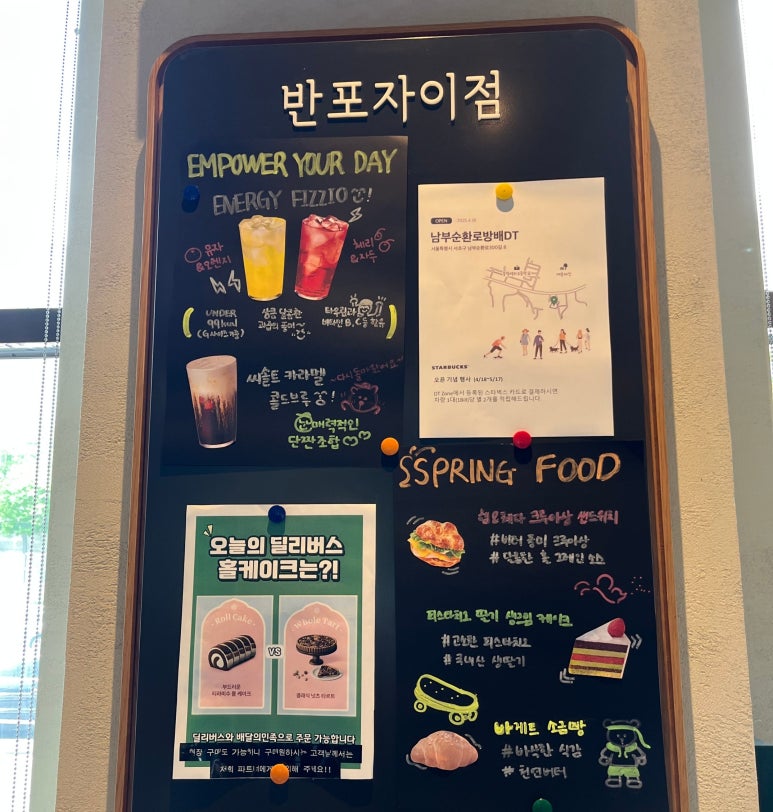 반포자이점
EMPOWER YOUR DAY
ENERGY FIZZIO !
유자
&오렌지
체리
&자두
UNDER
99kcal
(G사이즈 기준)
상큼 달콤한
과즙의 풍미~
타우린과
비타민 B, C를 함유
씨솔트 카라멜
콜드브루
~다시 돌아왔어요~
매력적인
단짠조합
OPEN 2025.4.18
남부순환로방배DT
서울특별시 서초구 남부순환로350길 8
STARBUCKS
오픈 기념 행사 (4/18~5/17)
DT Zone에서 등록된 스타벅스 카드로 결제하시면
차량 1대(1회)당 별 2개를 적립해드립니다.
SPRING FOOD
쉽 로제다 크루아상 샌드위치
#버터 풍미 크루아상
#달콤한 홀그레인 소스
피스타치오 딸기 생크림 케이크
#고소한 피스타치오
#국내산 생딸기
바게트 소금빵
#바삭한 식감
#천연버터
오늘의 딜리버스
홀케이크는?!
Roll Cake
부드러운
티라미수 롤 케이크
VS
Whole Tart
클래식 넛츠 타르트
딜리버스와 배달의민족으로 주문 가능합니다
매장 구매도 가능하니 구매원하시는 고객님께서는
저희 파트너에게 해 주세요!!